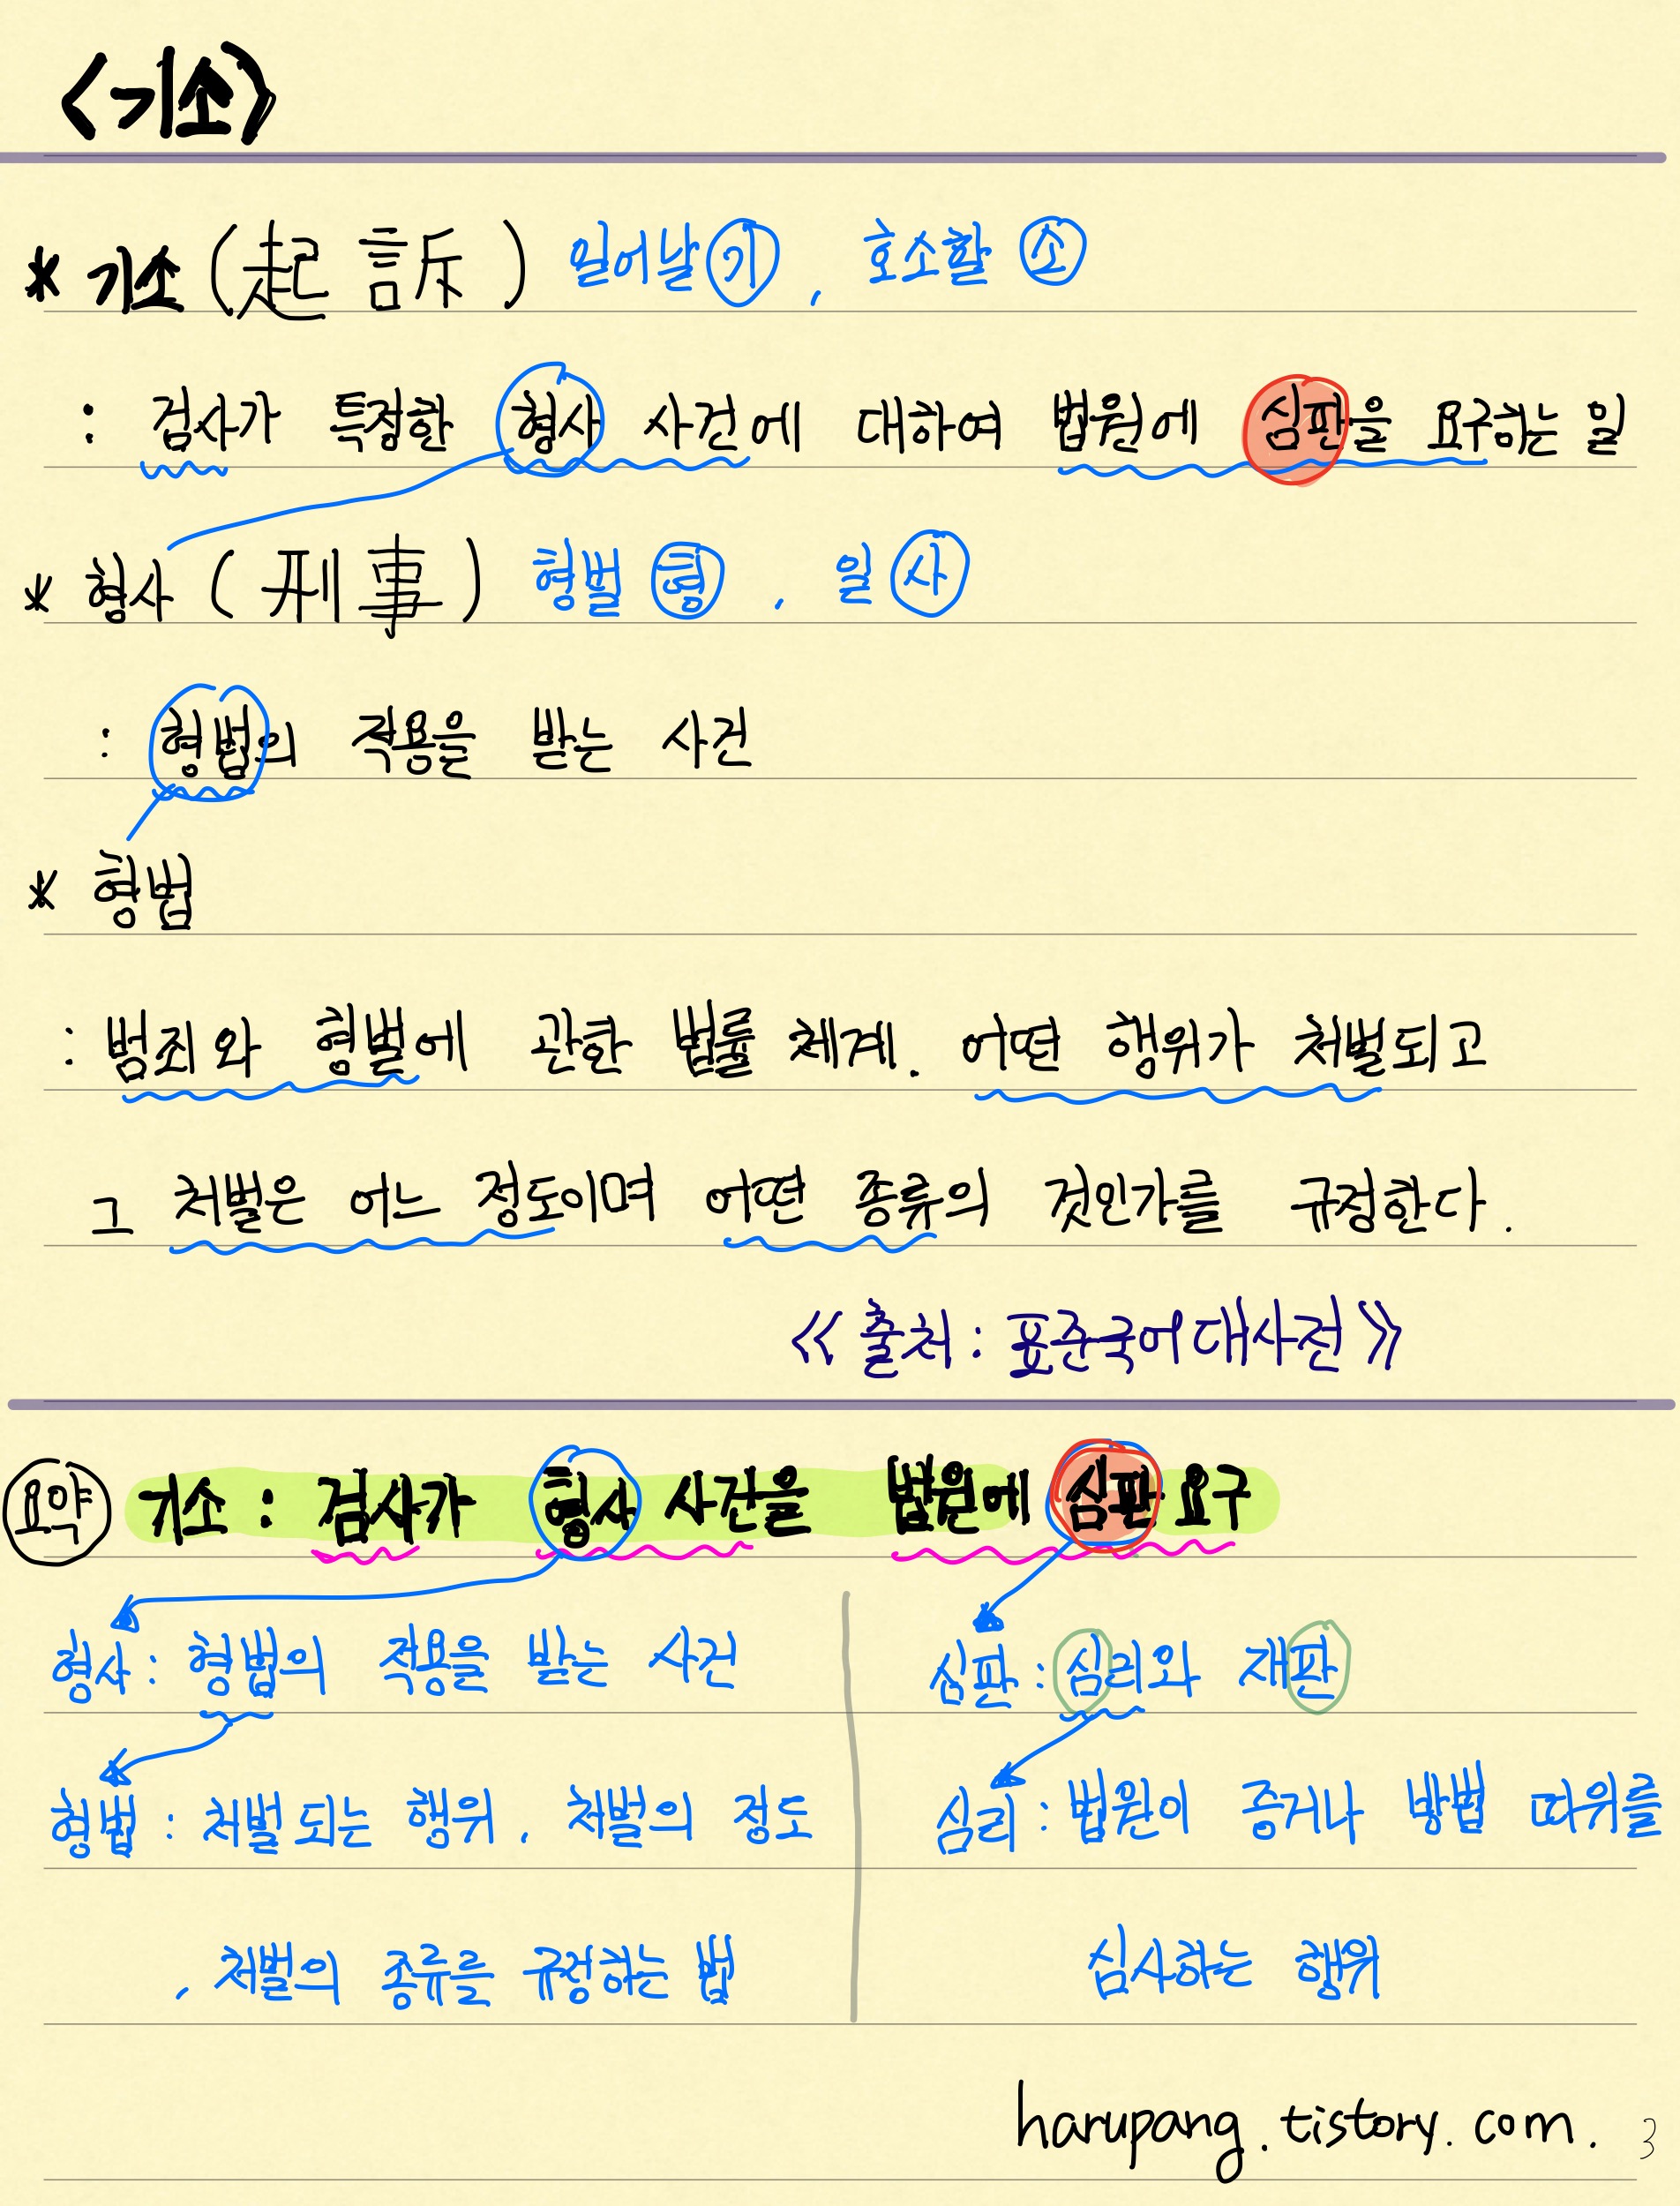 <기소>
* 기소 (起訴) 일어날 기, 호소할 소
: 검사가 특정한 형사 사건에 대하여 법원에 심판을 요구하는 일
* 형사 (刑事) 형벌 형, 일 사
: 형법의 적용을 받는 사건
* 형법
: 범죄와 형벌에 관한 법률 체계. 어떤 행위가 처벌되고
그 처벌은 어느 정도이며 어떤 종류의 것인가를 규정한다.
<< 출처 : 표준국어대사전 >>
요약 기소 : 검사가 형사 사건을 법원에 심판 요구
형사 : 형법의 적용을 받는 사건
형법 : 처벌되는 행위, 처벌의 정도
, 처벌의 종류를 규정하는 법
심판 : 심리와 재판
심리 : 법원이 증거나 방법 따위를
심사하는 행위
harupang.tistory.com. 3